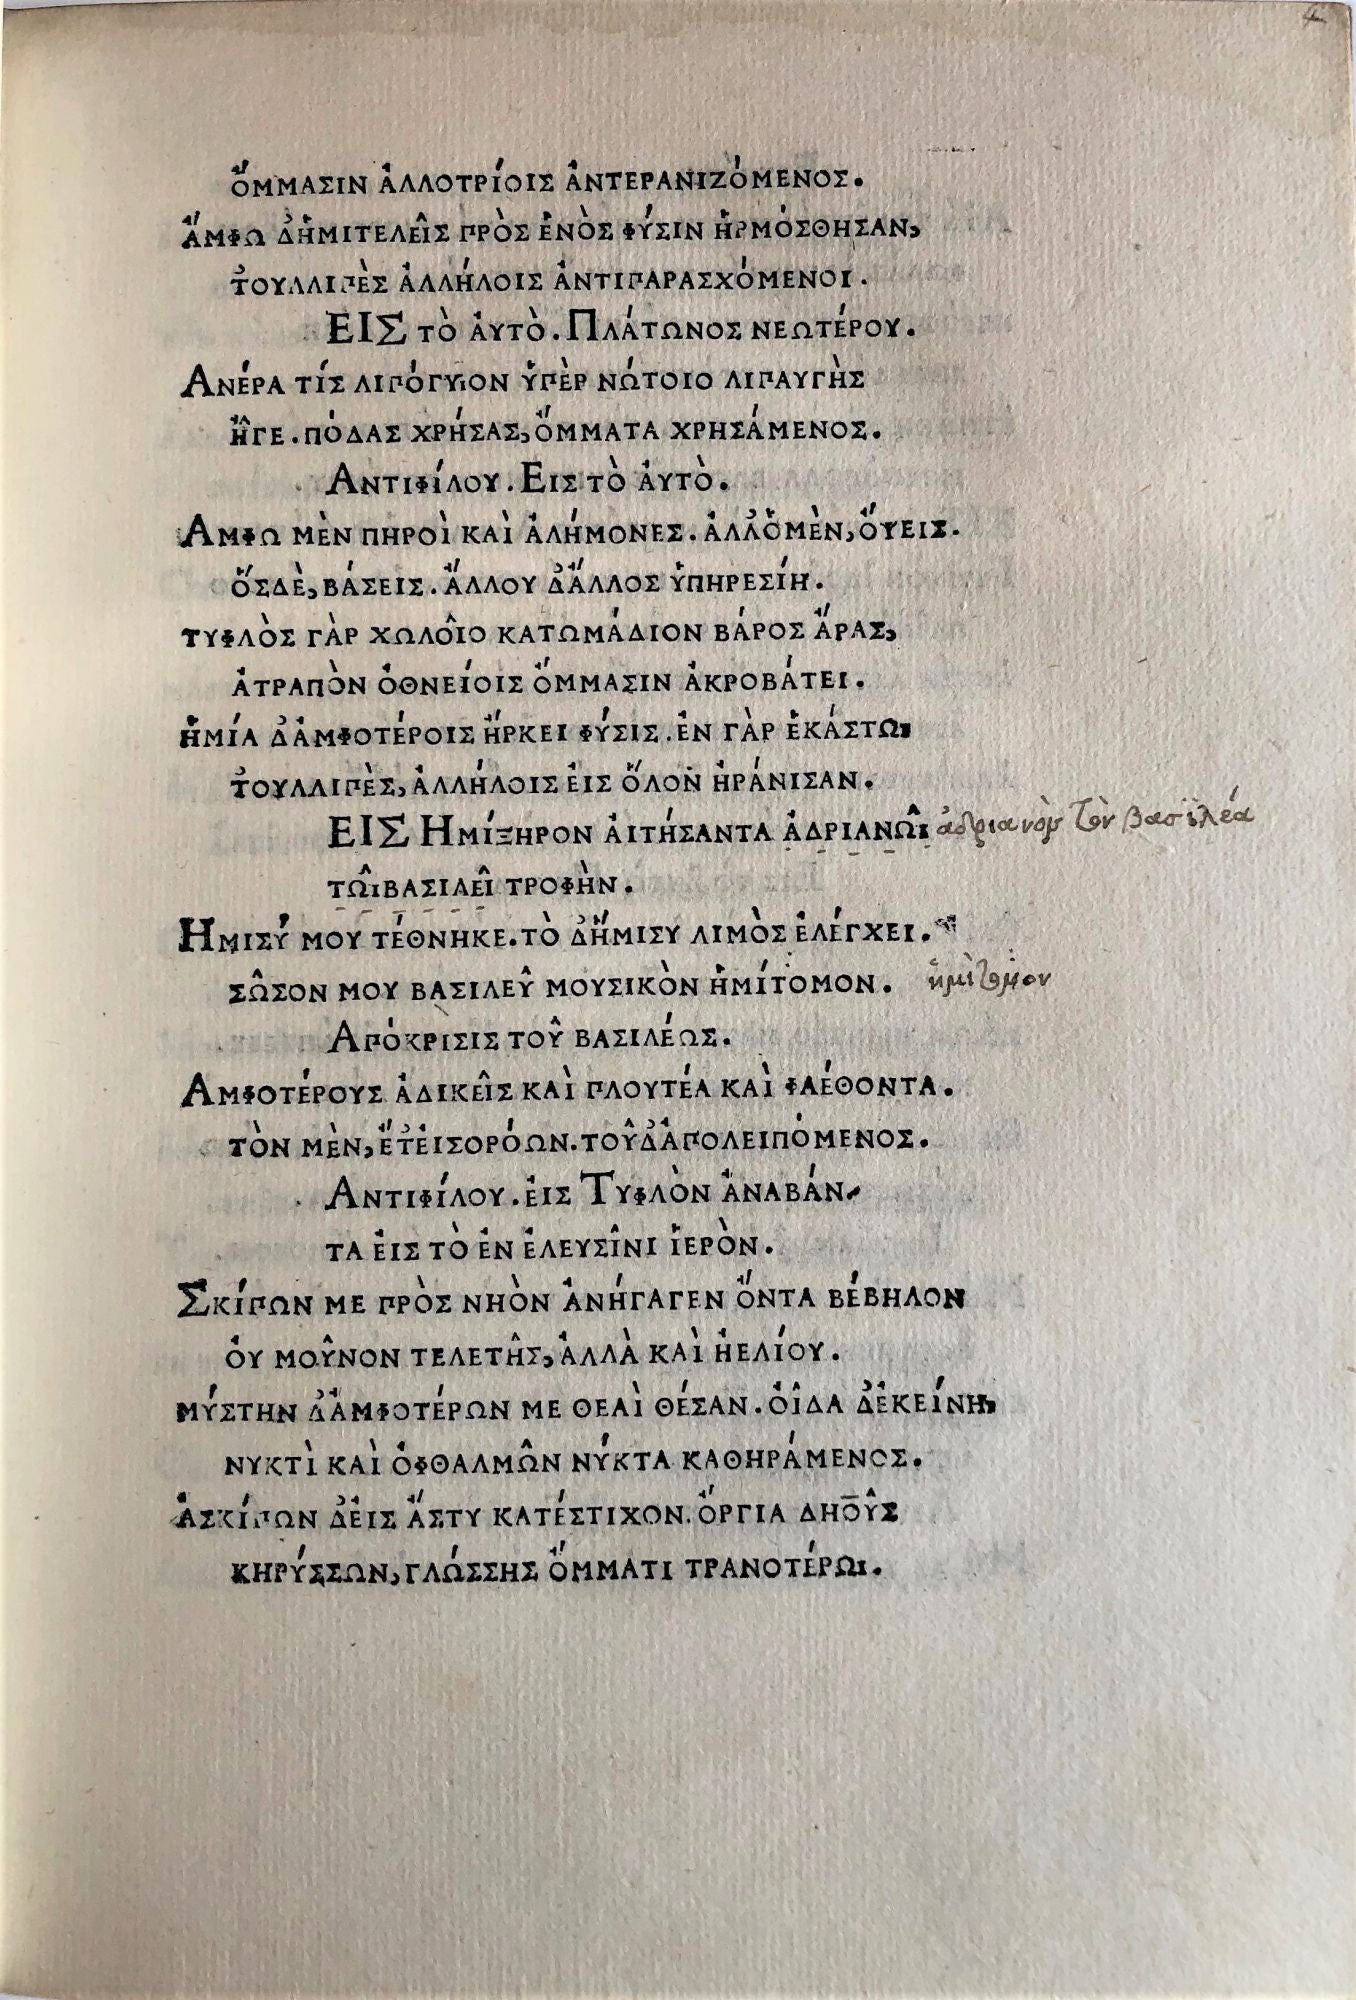 ὌΜΜΑΣΙΝ ἈΛΛΟΤΡΊΟΙΣ ἈΝΤΕΡΑΝΙΖΌΜΕΝΟΣ.
ἌΜΦΩ Δ᾿ἩΜΙΤΕΛΕΙ͂Σ ΠΡῸΣ ἙΝῸΣ ΦΎΣΙΝ ἩΡΜΌΣΘΗΣΑΝ,
Τ᾿ΟΥΛΛΙΠῈΣ ἈΛΛΉΛΟΙΣ ἈΝΤΙΠΑΡΑΣΧΌΜΕΝΟΙ.
ΕΙΣ ΤῸ ἈΥΤῸ. ΠΛΆΤΩΝΟΣ ΝΕΩΤΈΡΟΥ.
ΑΝΈΡΑ ΤΊΣ ΛΙΠΌΓΥΙΟΝ ὙΠῈΡ ΝΏΤΟΙΟ ΛΙΠΑΥΓῊΣ
ἮΓΕ. ΠΌΔΑΣ ΧΡΉΣΑΣ, ὌΜΜΑΤΑ ΧΡΗΣΆΜΕΝΟΣ.
ΑΝΤΙΦΊΛΟΥ. ΕΙΣ ΤῸ ἈΥΤῸ.
ΑΜΦΩ ΜῈΝ ΠΗΡΟῚ ΚΑῚ ἈΛΉΜΟΝΕΣ. ἈΛΛ᾿ὉΜῈΝ, ὌΨΕΙΣ.
ὍΣΔῈ, ΒΆΣΕΙΣ. ἌΛΛΟΥ Δ᾿ἌΛΛΟΣ ὙΠΗΡΕΣΊΗ.
ΤΥΦΛῸΣ ΓᾺΡ ΧΩΛΟΙ͂Ο ΚΑΤΩΜΆΔΙΟΝ ΒΆΡΟΣ ἌΡΑΣ,
ἈΤΡΑΠῸΝ ὈΘΝΕΊΟΙΣ ὌΜΜΑΣΙΝ ἈΚΡΟΒΆΤΕΙ.
ἩΜΊΑ Δ᾿ἈΜΦΟΤΈΡΟΙΣ ἬΡΚΕΙ ΦΎΣΙΣ. ἘΝ ΓᾺΡ ἙΚΆΣΤΩΙ
Τ᾿ΟΥΛΛΙΠῈΣ, ἈΛΛΉΛΟΙΣ ἘΙΣ ὍΛΟΝ ἨΡΆΝΙΣΑΝ.
ΕΙΣ ΗΜΙΞΗΡΟΝ ἈΙΤΉΣΑΝΤΑ ἈΔΡΙΑΝΩ͂Ι ἀδριανὸν τὸν βασιλέα
ΤΩ͂Ι ΒΑΣΙΛΕΙ͂ ΤΡΟΦῊΝ.
ΗΜΙΣΎ ΜΟΥ ΤΈΘΝΗΚΕ. ΤῸ Δ᾿ἭΜΙΣΥ ΛΙΜῸΣ ἘΛΈΓΧΕΙ.
ΣΩ͂ΣΟΝ ΜΟΥ ΒΑΣΙΛΕΥ͂ ΜΟΥΣΙΚῸΝ ἩΜΊΤΟΜΟΝ. ἡμίτομον
ΑΠΌΚΡΙΣΙΣ ΤΟΥ͂ ΒΑΣΙΛΈΩΣ.
ΑΜΦΟΤΈΡΟΥΣ ἈΔΙΚΕΙ͂Σ ΚΑῚ ΠΛΟΥΤΈΑ ΚΑῚ ΦΑΈΘΟΝΤΑ.
ΤῸΝ ΜῈΝ, ἜΤ᾿ἘΙΣΟΡΌΩΝ. ΤΟΥ͂ Δ᾿ἈΠΟΛΕΙΠΌΜΕΝΟΣ.
ΑΝΤΙΦΊΛΟΥ. ἘΙΣ ΤΥΦΛῸΝ ἈΝΑΒΆΝ-
ΤΑ ἘΙΣ ΤῸ ἘΝ ἘΛΕΥΣΙ͂ΝΙ ἹΕΡῸΝ.
ΣΚΊΠΩΝ ΜΕ ΠΡῸΣ ΝΗῸΝ ἈΝΉΓΑΓΕΝ ὌΝΤΑ ΒΈΒΗΛΟΝ
ὈΥ ΜΟΥ͂ΝΟΝ ΤΕΛΕΤΗ͂Σ, ἈΛΛᾺ ΚΑῚ ἨΕΛΊΟΥ.
ΜΎΣΤΗΝ Δ᾿ἈΜΦΟΤΈΡΩΝ ΜΕ ΘΕΑῚ ΘΈΣΑΝ. ὈΙ͂ΔΑ Δ᾿ἘΚΕΊΝΗΙ
ΝΥΚΤῚ ΚΑῚ ὈΦΘΑΛΜΩ͂Ν ΝΎΚΤΑ ΚΑΘΗΡΆΜΕΝΟΣ.
ἈΣΚΊΠΩΝ Δ᾿ἘΙΣ ἌΣΤΥ ΚΑΤΈΣΤΙΧΟΝ. ὌΡΓΙΑ ΔΗΟΥ͂Σ
ΚΗΡΎΣΣΩΝ, ΓΛΏΣΣΗΣ ὌΜΜΑΤΙ ΤΡΑΝΟΤΈΡΩΙ.